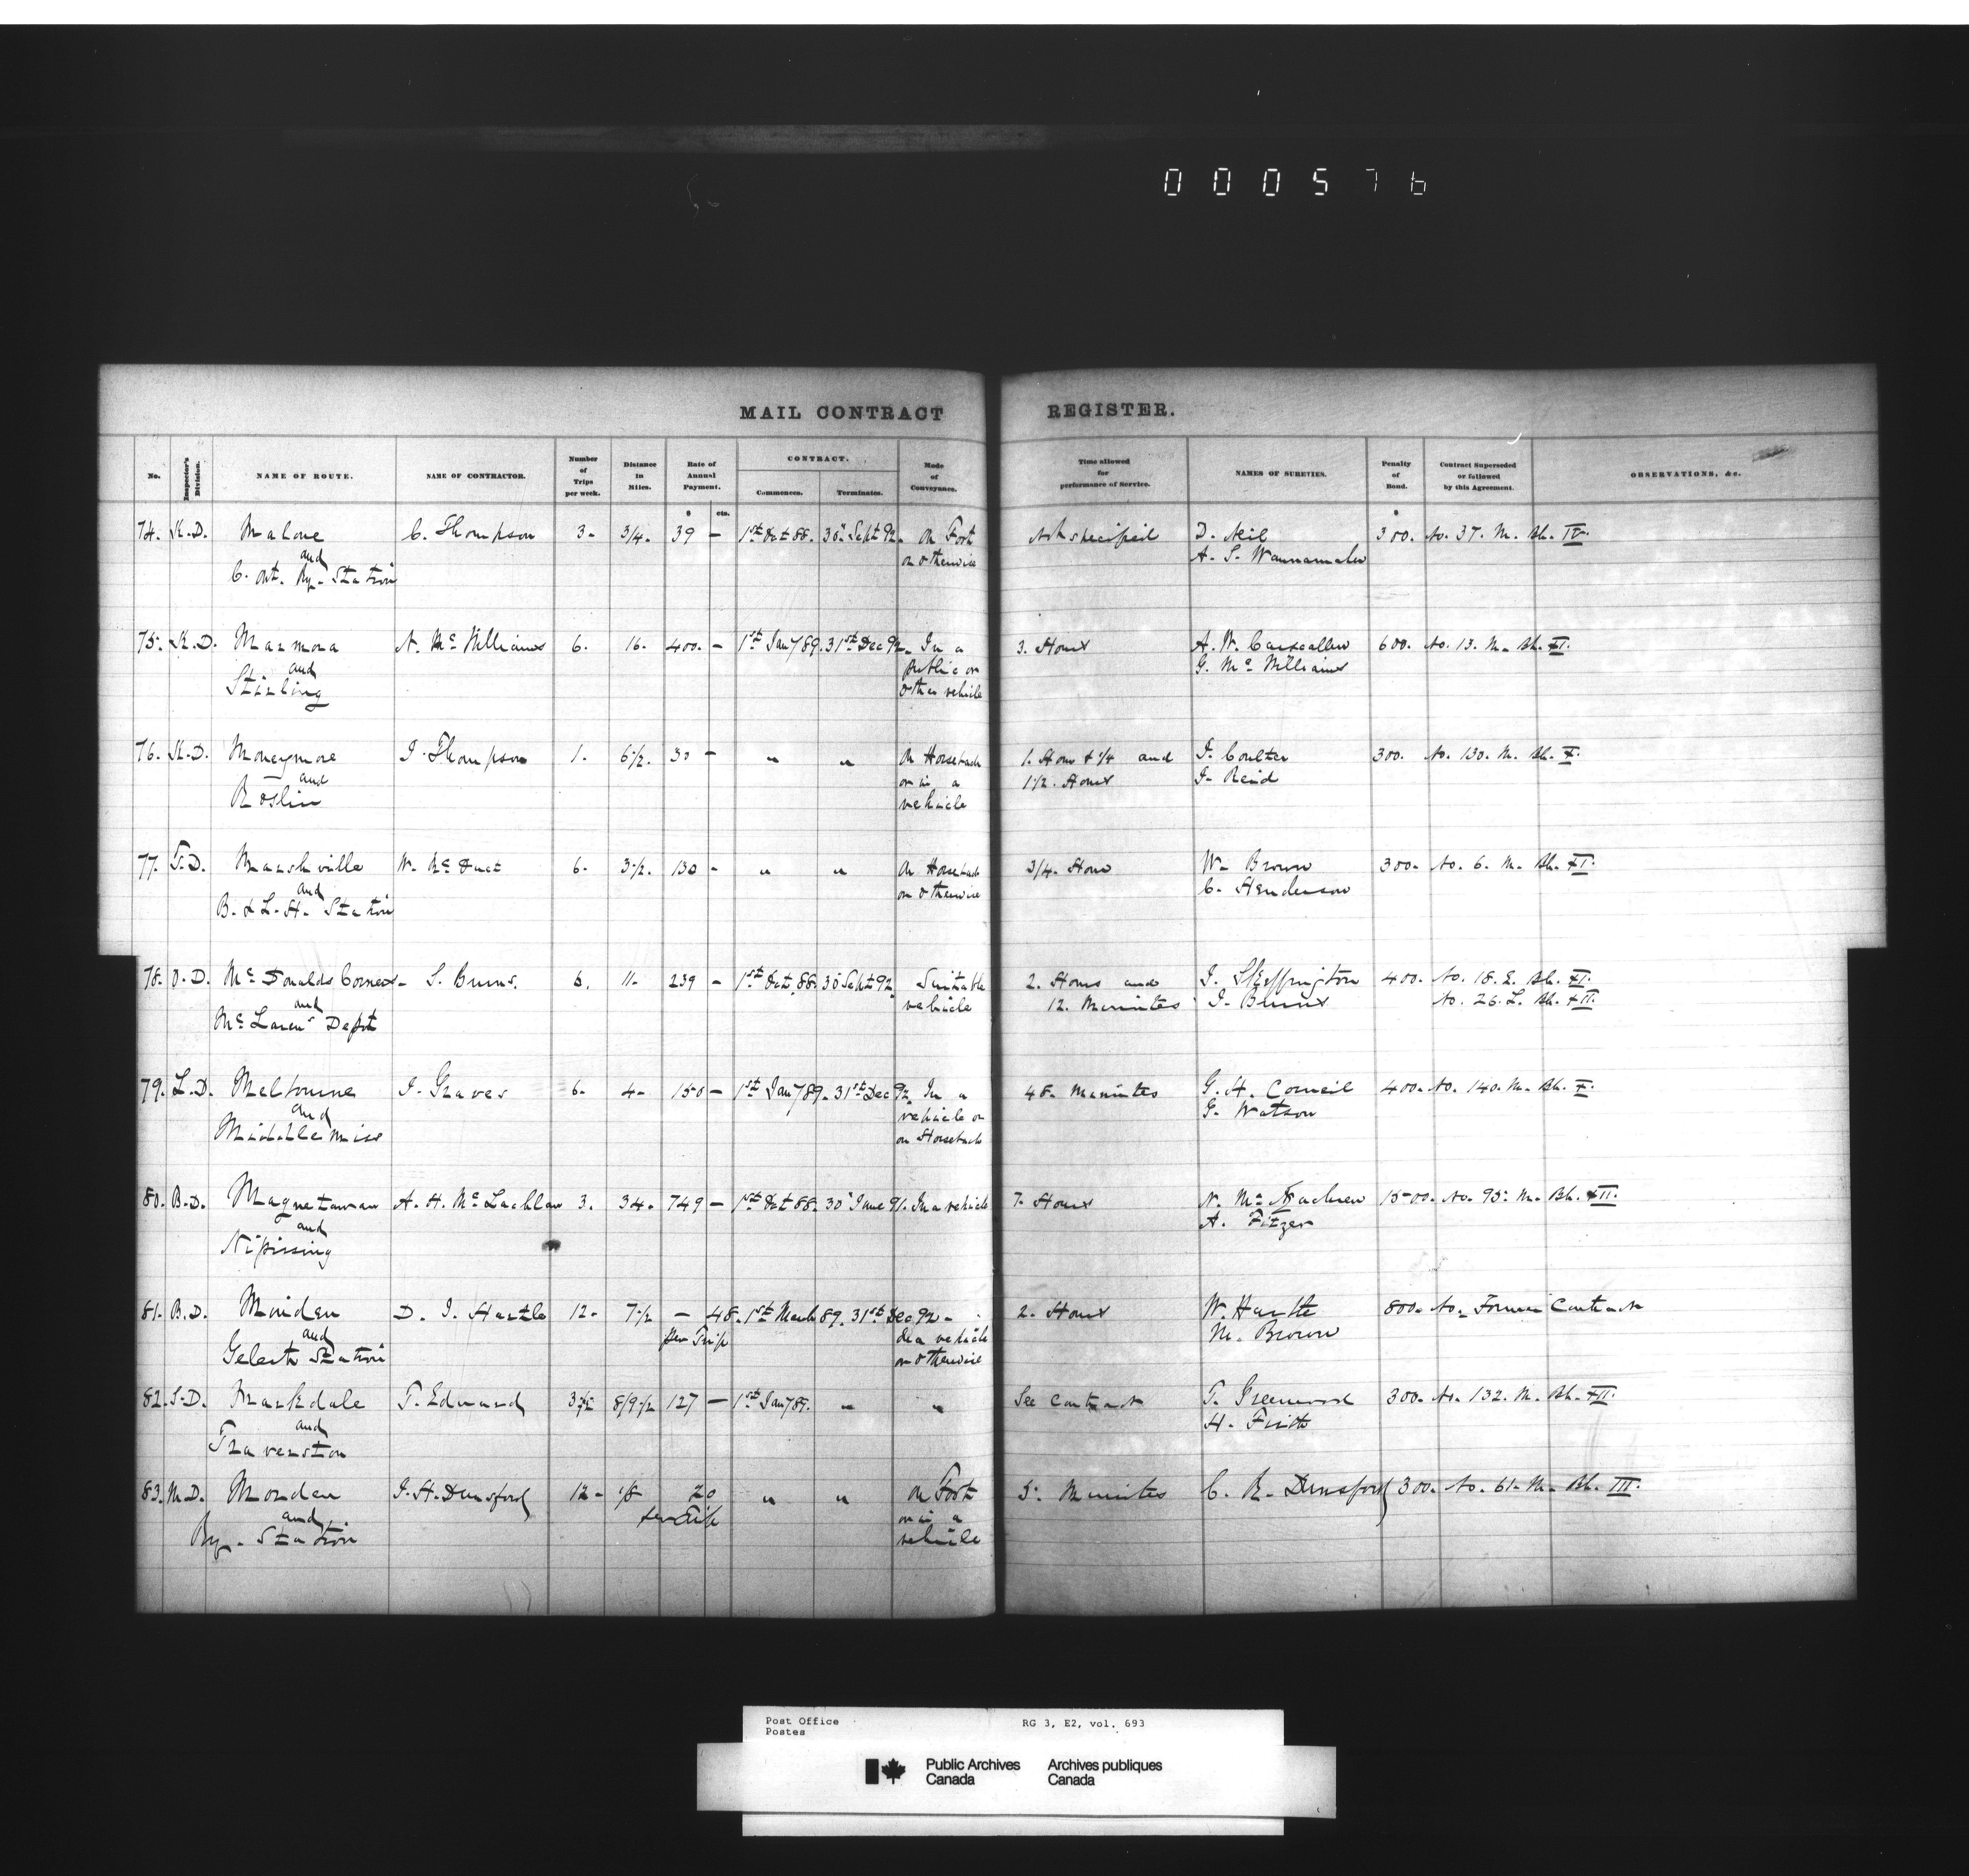 000576
MAIL CONTRACT REGISTER.
No. Inspector's Division. NAME OF ROUTE. NAME OF CONTRACTOR. Number of Trips per week. Distance in Miles. Rate of Annual Payment. CONTRACT. Commences. Terminates. Mode of Conveyance. Time allowed for performance of Service. NAMES OF SURETIES. Penalty of Bond. Contract Superseded or followed by this Agreement. OBSERVATIONS, &c.
$ cts. $
74. K.D. Malone C. Thompson 3. 3/4. 39 — 1st Oct 88. 30" Sept 92. On Foot Not specified D. Neil 300. No. 37. M. Bk. IV.
and or otherwise A. S. Wannamaker
C. Ont. Ry. Station
75. K.D. Marmora N. McWilliams 6. 16. 400. — 1st Jany 89. 31st Dec 92. In a 3. Hours A. W. Carscallen 600. No. 13. M. Bk. XI.
and public or G. McWilliams
Stirling other vehicle
76. K.D. Moneymore J. Thompson 1. 6 1/2. 30 — " " On Horseback 1. Hour & 1/4 and J. Coulter 300. No. 130. M. Bk. X.
and or in a 1 1/2. Hours J. Reid
Roslin vehicle
77. T.D. Marshville W. 6. 3 1/2. 130 — " " On Horseback 3/4. Hour W. Brown 300. No. 6. M. Bk. XI.
and or otherwise C. Henderson
B. & L. H. Station
78. O.D. McDonalds Corners S. Burns. 6. 11. 239 — 1st Oct. 88. 30 Sept 92. Suitable 2. Hours and J. Skeffington 400. No. 18. L. Bk. XI.
and vehicle 12. Minutes J. Burns No. 26. L. Bk. XII.
McLaren's Depot
79. L.D. Melbourne J. Graves 6. 4. 150 — 1st Jany 89. 31st Dec 92. In a 48. Minutes G. H. Corneil 400. No. 140. M. Bk. X.
and vehicle or G. Watson
Middlemiss on Horseback
80. B.D. Magnetawan A. H. McLachlan 3. 34. 749 — 1st Oct 88. 30" June 91. In a vehicle 7. Hours N. 1500. No. 95. M. Bk. XII.
and A. Fitzer
Nipissing
81. B.D. Minden D. J. Hartle 12. 7 1/2 — 48. 1st March 89. 31st Dec 92. 2. Hours W. Hartle 800. No Former Contract
and per Trip In a vehicle M. Brown
Gelert Station or otherwise
82. S.D. Markdale T. Edward 8/9 1/2 127 — 1st Jany 89. " " See contract T. Greenwood 300. No. 132. M. Bk. XII.
and H. Firth
Traverston
83. M.D. Morden J. H. Dunsford 12. 1/8 20 " " On Foot 5. Minutes C. R. Dunsford 300. No. 61. M. Bk. III.
and per Trip or in a
Ry. Station vehicle
Post Office RG 3, E2, vol. 693
Postes
Public Archives Archives publiques
Canada Canada